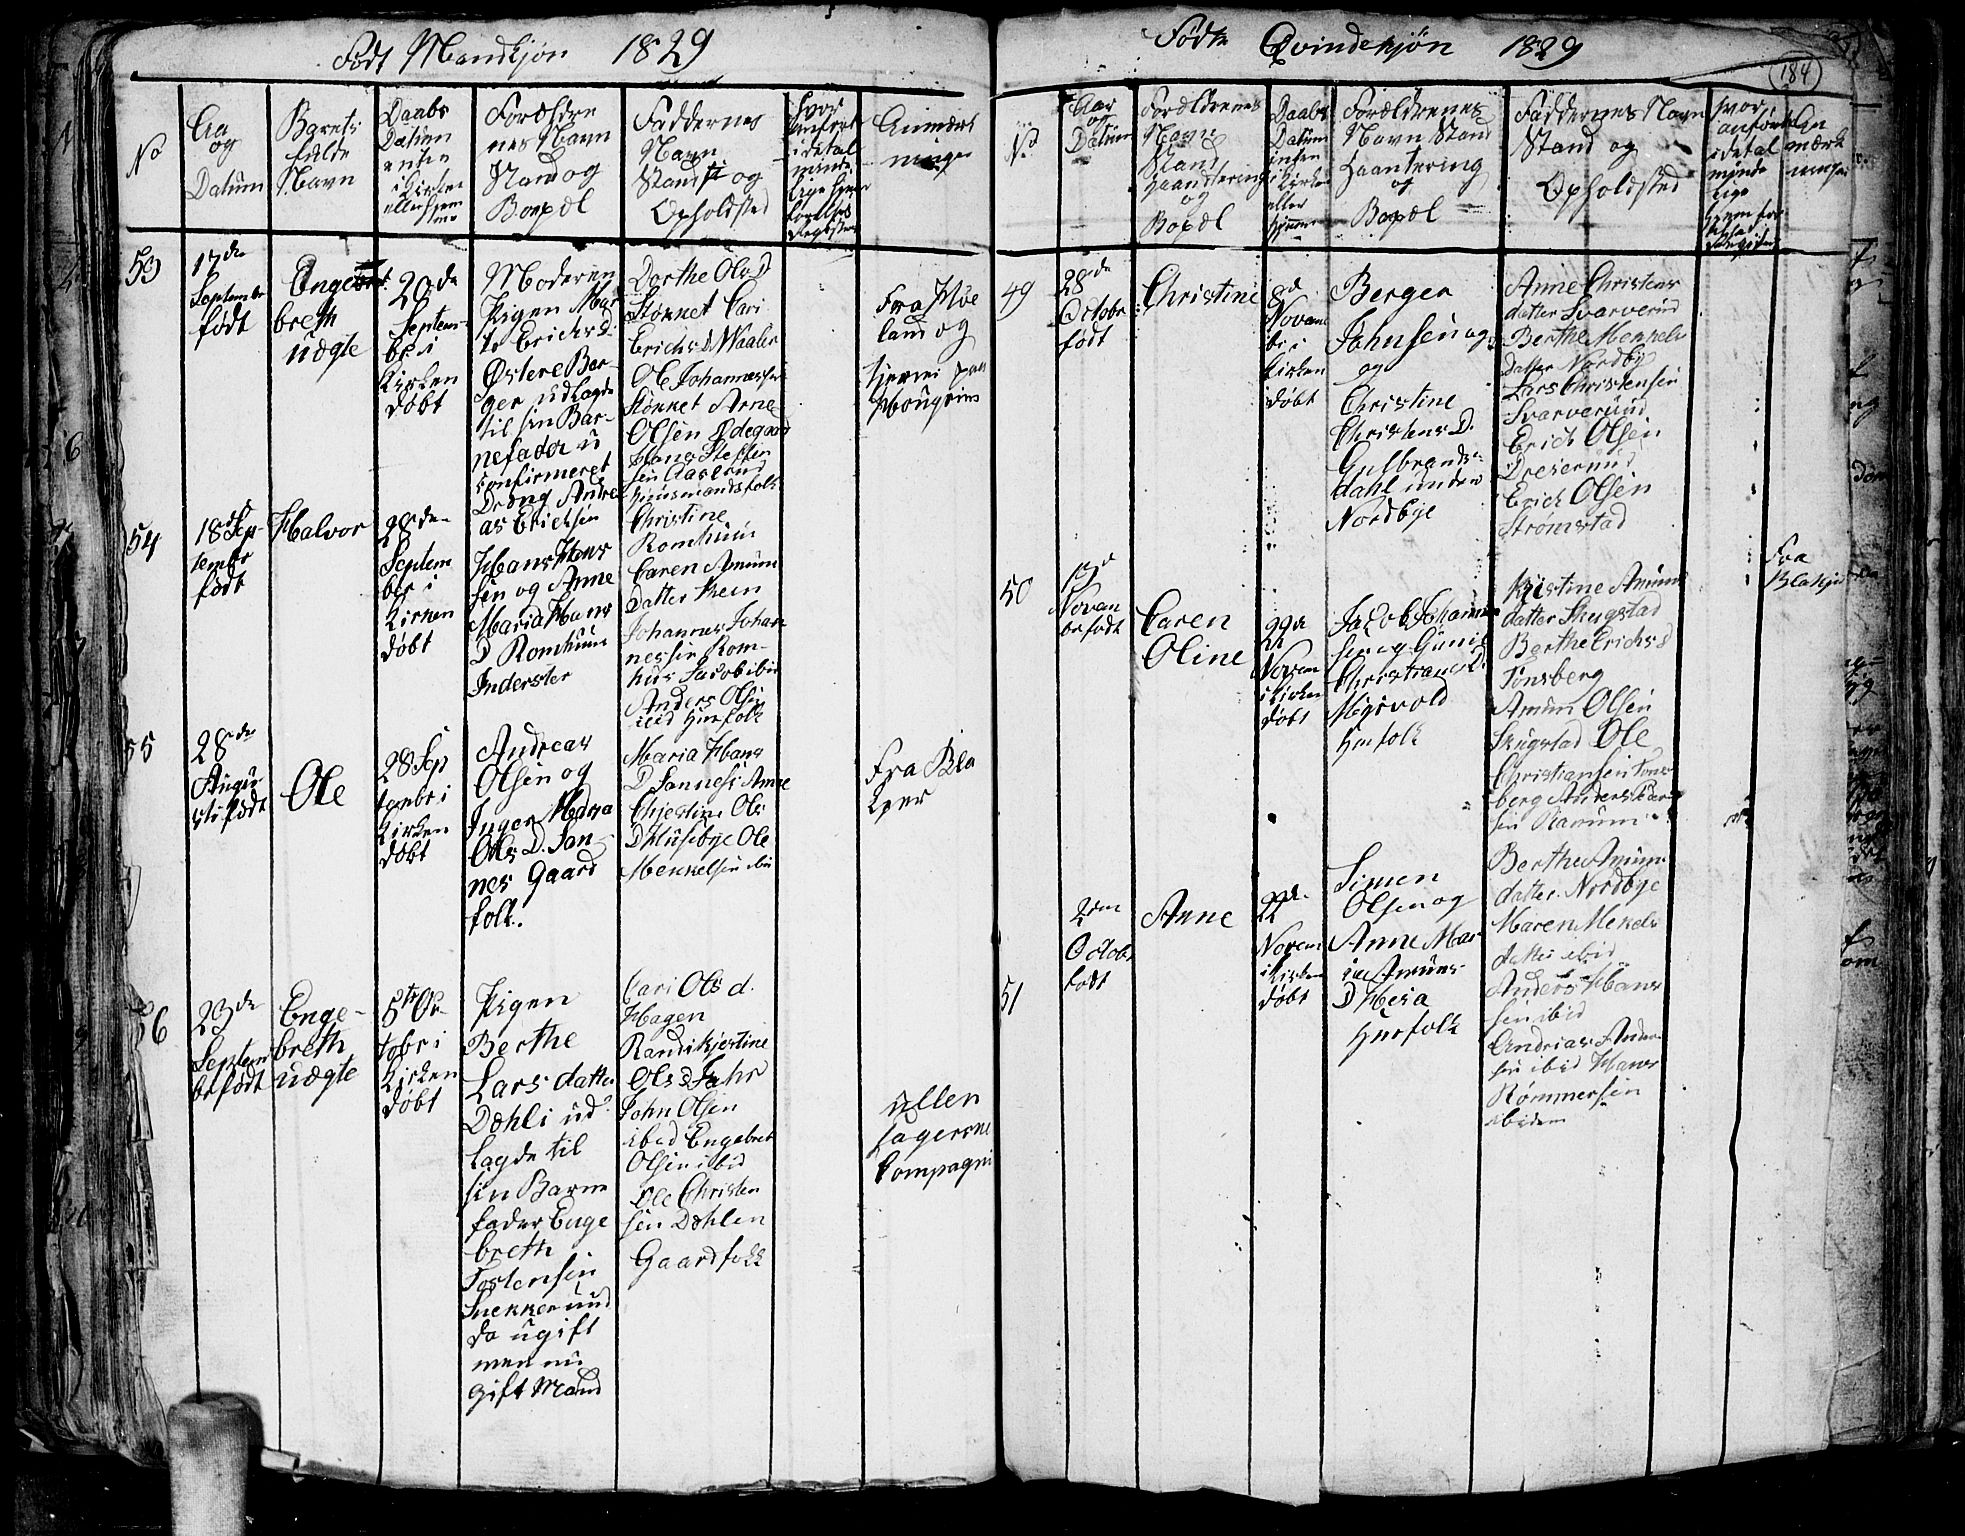 Født Mandkjøn 1829
No
Aa
og
Datum
Barets
fulde
Navn
Daabs
Datum
i Kirken
Forældre
nes Navn
Stand og
Bopæl
Faddernes
Navn
Stand og
Opholdsted
Hvor
anført
i detal
minde
lige
Anmærk
ninger
53
17de
Septembr
født
Enge
breth
uægte
20de
Septem
ber i
Kirken
døbt
Moderen
Pigen Mar
te Erichs D
Østere Ber-
ger udlagde
til sin Bar-
nefader u
confirmeret
Dreng Andre
as Erichsen
Dorthe Ols D
Stønnet Cari
Erichs D Waaler
Ole Johannessen
Stønnet Arne
Olsen Ødegaard
Hans Steffen
sen Aaserud
Huusmandsfolk
Fra
land og
tjenner paa
Hougrim
54
18 Sep
tembr
født
Halvor
28de
Septem
ber i
Kirken
døbt
Hans Hans
sen og Anne
Maria Hans
D Romhuus
Inderster
Christine
Romhuus
Caren Amun
Datter
Johannes Johan
nessen Rom-
hus Jacob ibid
Anders Olsen
ibid Husfolk
55
28de
Augu
sti født
Ole
28 Sep
tembr i
Kirken
døbt
Andreas
Olsen og
Inger Maria
Ols D. San
nes Gaard
folk.
Maria Hans
D Sannes Anne
Chjestine Ols
D Husebye Ole
Menkelsen ibi
Fra Bla
kjer
56
23de
Septem
br født
Enge-
breth
uægte
5te Oc
tobr i
Kirken
døbt
Pigen
Berthe
Lars datter
Dæhli ud
lagde til
sin Barne
fader Enge
breth
Tostensen
Snekkerud
da ugift
men nu
gift Mand
Cari Ols d.
Hagen
Randi Kjestine
Ols D Fahr
John Olsen
ibid Engebret
Olsen ibid
Ole Christen
sen Dæhlen
Gaardfolk
Ullen
sagerne
Compagni
Fødte Qvindekjøn 1829
184
No
Aar
og
Datum
Forældrenes
Navn
Stand
Haandtering
og
Bopæl
Daabs
Datum
i Kirken
eller
hjemme
Forældrenes
Navn Stand
Haantering
og
Bopæl
Faddernes Navn
Stand og
Opholdsted
Hvor
anført
i detal
minde
lige
An
mærk
ninger
49
28de
Octobr
født
Christine
8d
Novem
br i
Kirken
døbt
Berger
Johnsen og
og
Christine
Christens D.
Gulbrands-
dahl under
Nordbye
Anne Christens
datter Svarverud
Berthe Menkels
Datter Nordby
Lars Christensen
Svarverud
Erich Olsen
Dreserud
Erich Olsen
Strømstad
50
Novem
br født
Caren
Oline
22d
Novem
i Kirken
døbt
Jacob Johannes
sen og Gunil
Christians D.
Mysvold
Husfolk
Kristine Amun
datter Skugstad
Berthe Erichs d
Tonsberg
Amun Olsen
Skugstad Ole
Christiansen Tons
berg Anders Peder
sen Ramum
Fra
Blakjer
51
2den
Octobr
født
Anne
22d.
Novem
i Kirken
døbt
Simen
Olsen og
Anne Mar
ia Amuns
D Heia
Husfolk
Berthe Amuns
datter Nordbye
Maren Menkels
datter ibid
Anders Hans
sen ibid
Andrias Anders
sen ibid Hans
Rømmersen
ibidem